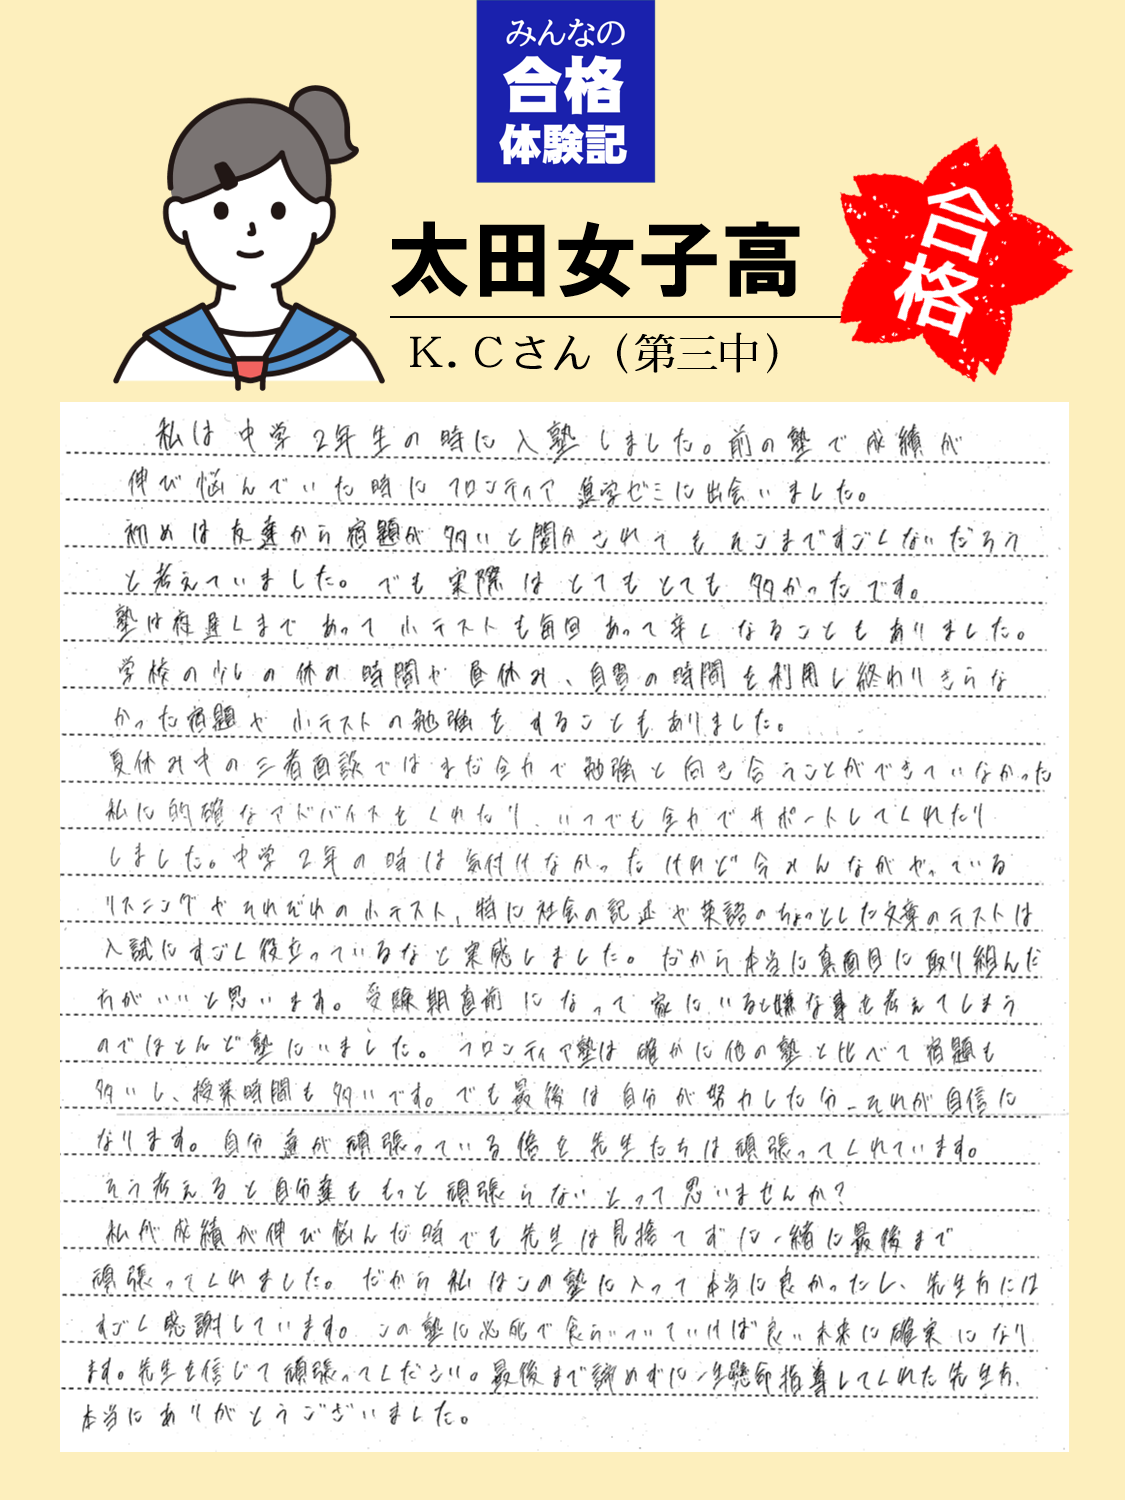 みんなの
合格
体験記
太田女子高
合格
K.Cさん（第三中）
私は中学2年生の時に入塾しました。前の塾で成績が
伸び悩んでいた時にフロンティア進学ゼミに出会いました。
初めは友達から宿題が多いと聞かされてもそこまですごくないだろう
と考えていました。でも実際はとてもとても多かったです。
塾は夜遅くまであって小テストも毎回あって辛くなることもありました。
学校の少しの休み時間や昼休み、自習の時間を利用し終わりきらな
かった宿題や小テストの勉強をすることもありました。
夏休み中の三者面談ではまだ全力で勉強と向き合うことができていなかった
私に的確なアドバイスをくれたり、いつでも全力でサポートしてくれたり
しました。中学2年の時は気付けなかったけれど今みんながやっている
リスニングやそれぞれの小テスト、特に社会の記述や英語のちょっとした文章のテストは
入試にすごく役立っているなと実感しました。だから本当に真面目に取り組んだ
方がいいと思います。受験期直前になって家にいると嫌な事を考えてしまう
のでほとんど塾にいました。フロンティア塾は確かに他の塾と比べて宿題も
多いし、授業時間も多いです。でも最後は自分が努力した分、それが自信に
なります。自分達が頑張っている倍を先生たちは頑張ってくれています。
そう考えると自分達ももっと頑張らないとって思いませんか？
私が成績が伸び悩んだ時でも先生は見捨てずに一緒に最後まで
頑張ってくれました。だから私はこの塾に入って本当に良かったし、先生方には
すごく感謝しています。この塾に必死で食らいついていけば良い未来に確実になり
ます。先生を信じて頑張ってください。最後まで諦めずに一生懸命指導してくれた先生方、
本当にありがとうございました。